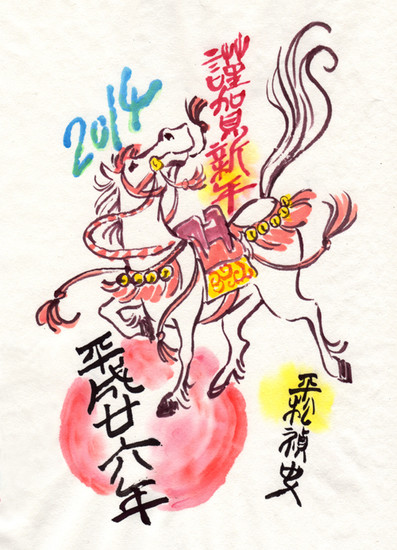 2014
謹賀新年
平成廿六年
平松禎史